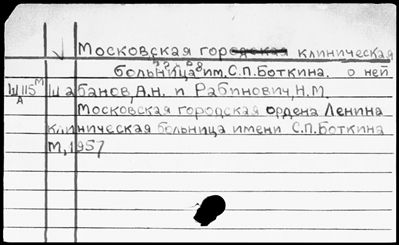 Московская городская клиническая
больница им. С.П. Боткина. о ней
Ш115м Шабанов, А.Н. и Рабинович, Н.М.
А
Московская городская ордена Ленина
клиническая больница имени С.П. Боткина
М, 1957